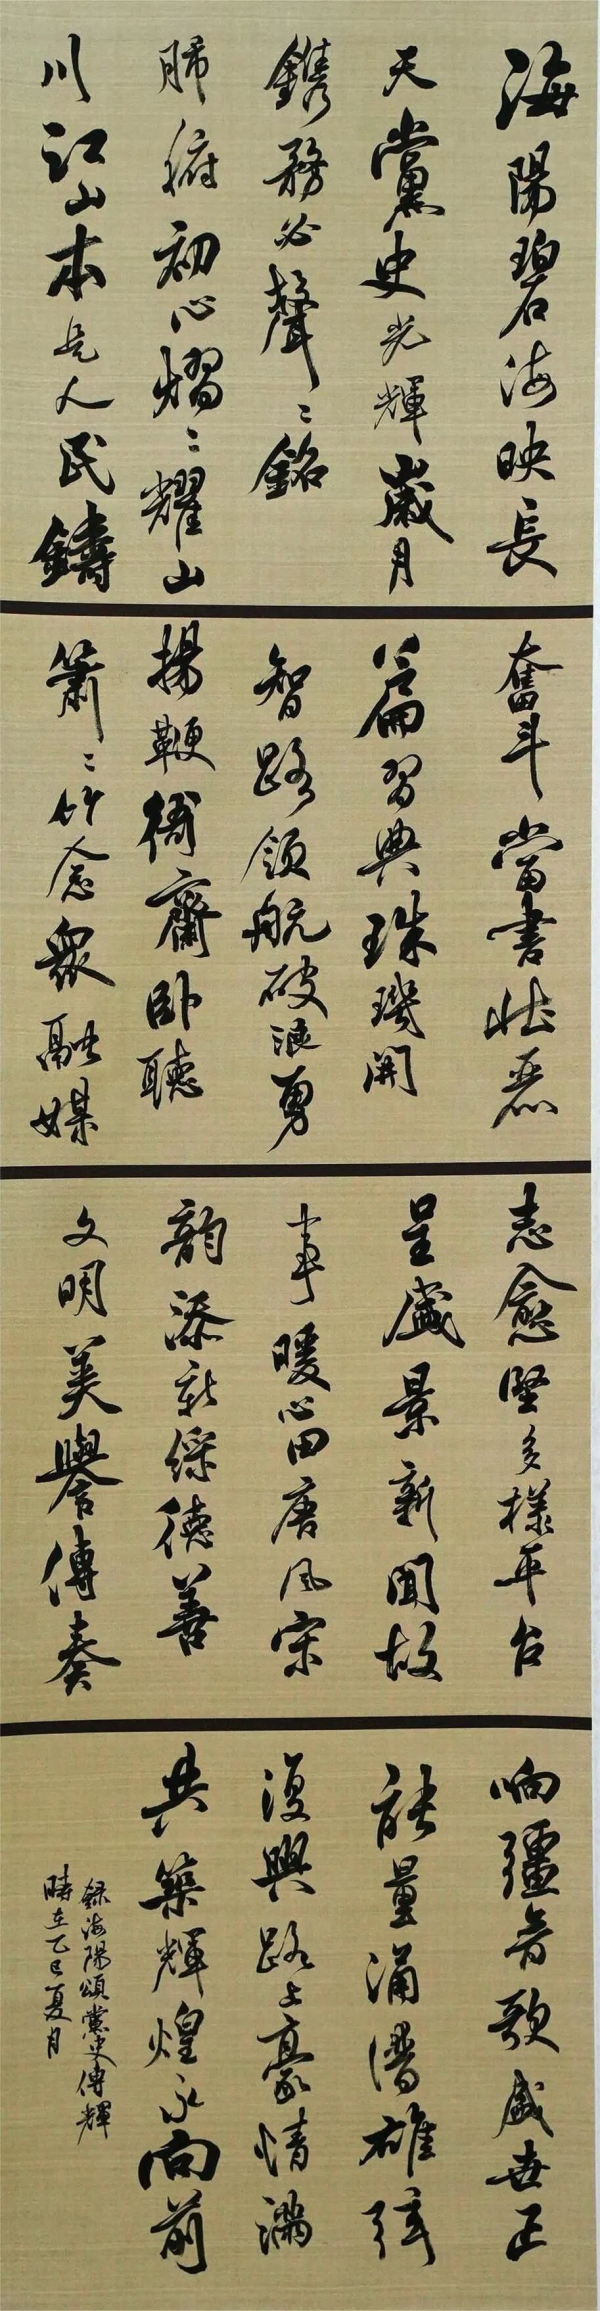 海陽碧海映長
天黨史光輝歲月
鐫務必聲〻銘
肺腑初心熠〻耀山
川江山本是人民鑄
奮斗當書壯麗
篇習典珠璣開
智路領航破浪勇
揚鞭衙齋卧聽
蕭〻竹念眾融媒
志愈堅多樣平台
呈盛景新聞故
事暖心田唐風宋
韵添新綵德善
文明美譽傳奏
响疆音歌盛世正
能量涌譜雄弦
復興路上豪情滿
共築輝煌永向前
録海陽頌黨史傳輝
時在乙巳夏月